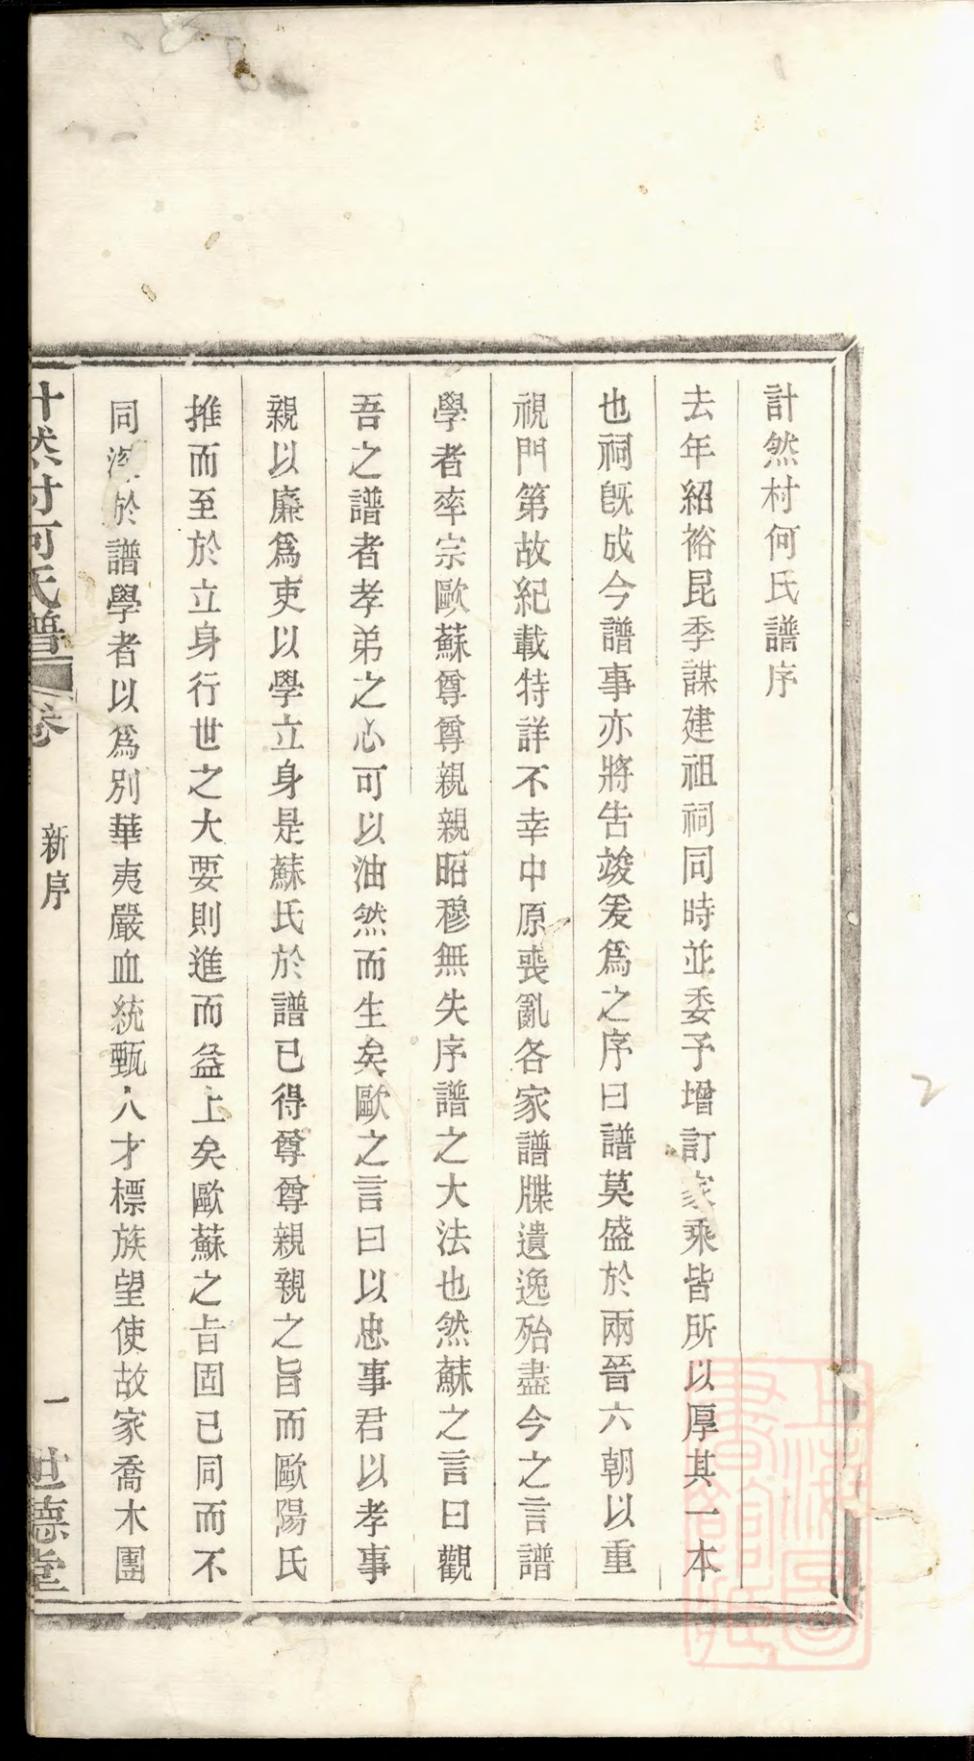 計然村何氏譜序
去年紹裕昆季謀建祖祠同時並委予增訂家乘皆所以厚其一本
也祠旣成今譜事亦將吿竣爰爲之序曰譜莫盛於兩晉六朝以重
視門第故紀載特詳不幸中原喪亂各家譜牒遺逸殆盡今之言譜
學者率宗歐蘇尊尊親親昭穆無失序譜之大法也然蘇之言曰觀
吾之譜者孝弟之心可以油然而生矣歐之言曰以忠事君以孝事
親以廉爲吏以學立身是蘇氏於譜已得尊尊親親之旨而歐陽氏
推而至於立身行世之大要則進而益上矣歐蘇之旨固已同而不
同深於譜學者以爲別華夷嚴血統甄人才標族望使故家喬木團
計然村何氏譜 卷 新序 一 世德堂
上海圖書館藏
2